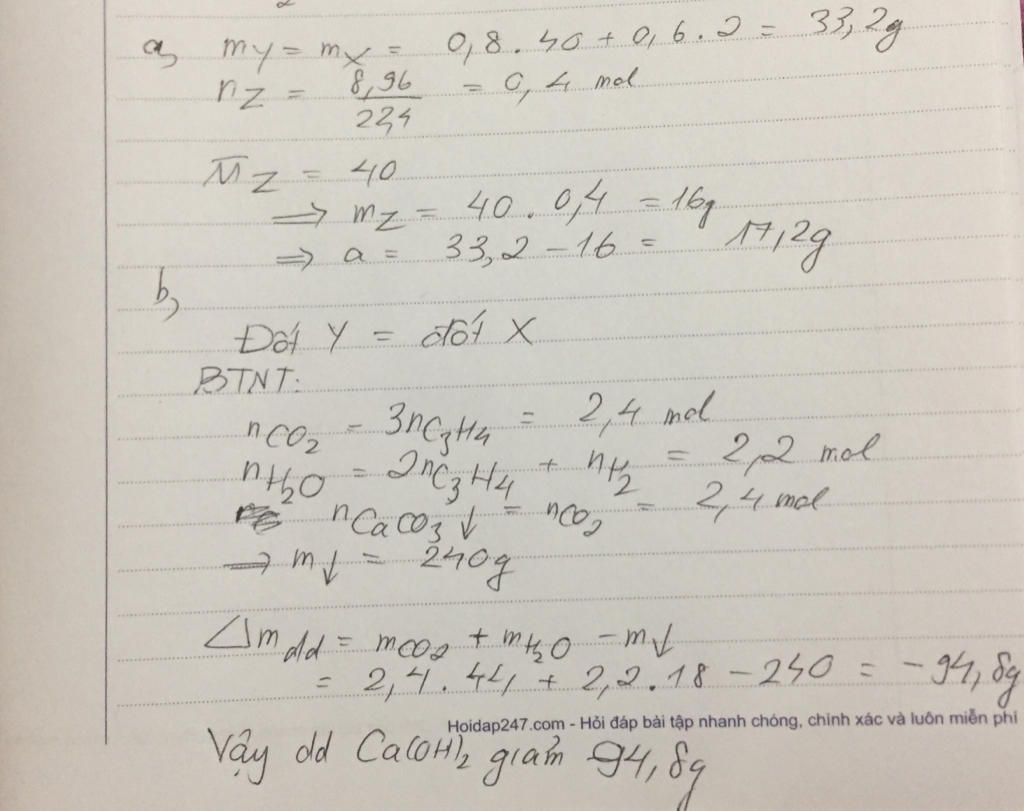 a, mY = mX = 0,8 . 40 + 0,6 . 2 = 33,2g
nZ = 8,96/22,4 = 0,4 mol
M̅Z = 40
⇒ mZ = 40 . 0,4 = 16g
⇒ a = 33,2 - 16 = 17,2g
b,
Đốt Y = đốt X
BTNT:
nCO2 = 3nC3H4 = 2,4 mol
nH2O = 2nC3H4 + nH2 = 2,2 mol
nCaCO3↓ = nCO2 = 2,4 mol
⇒ m↓ = 240g
△mdd = mCO2 + mH2O - m↓
= 2,4 . 44 + 2,2 . 18 - 240 = -94,8g
Hoidap247.com - Hỏi đáp bài tập nhanh chóng, chính xác và luôn miễn phí
Vậy dd Ca(OH)2 giảm 94,8g